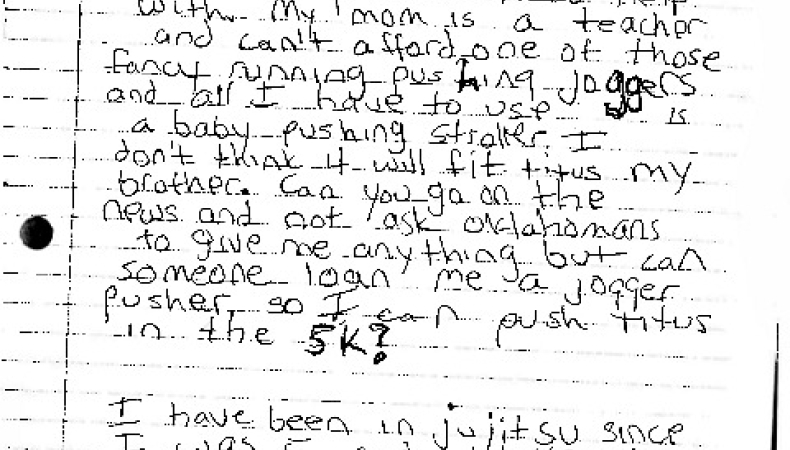 with. My mom is a teacher
and can't afford one of those
fancy running pushing joggers
and all I have to use is
a baby pushing stroller. I
don't think it will fit titus my
brother. Can you go on the
news and not ask oklahomans
to give me anything but can
someone loan me a jogger
pusher, so I can push titus
in the 5K?
I have been in jujitsu since
I was